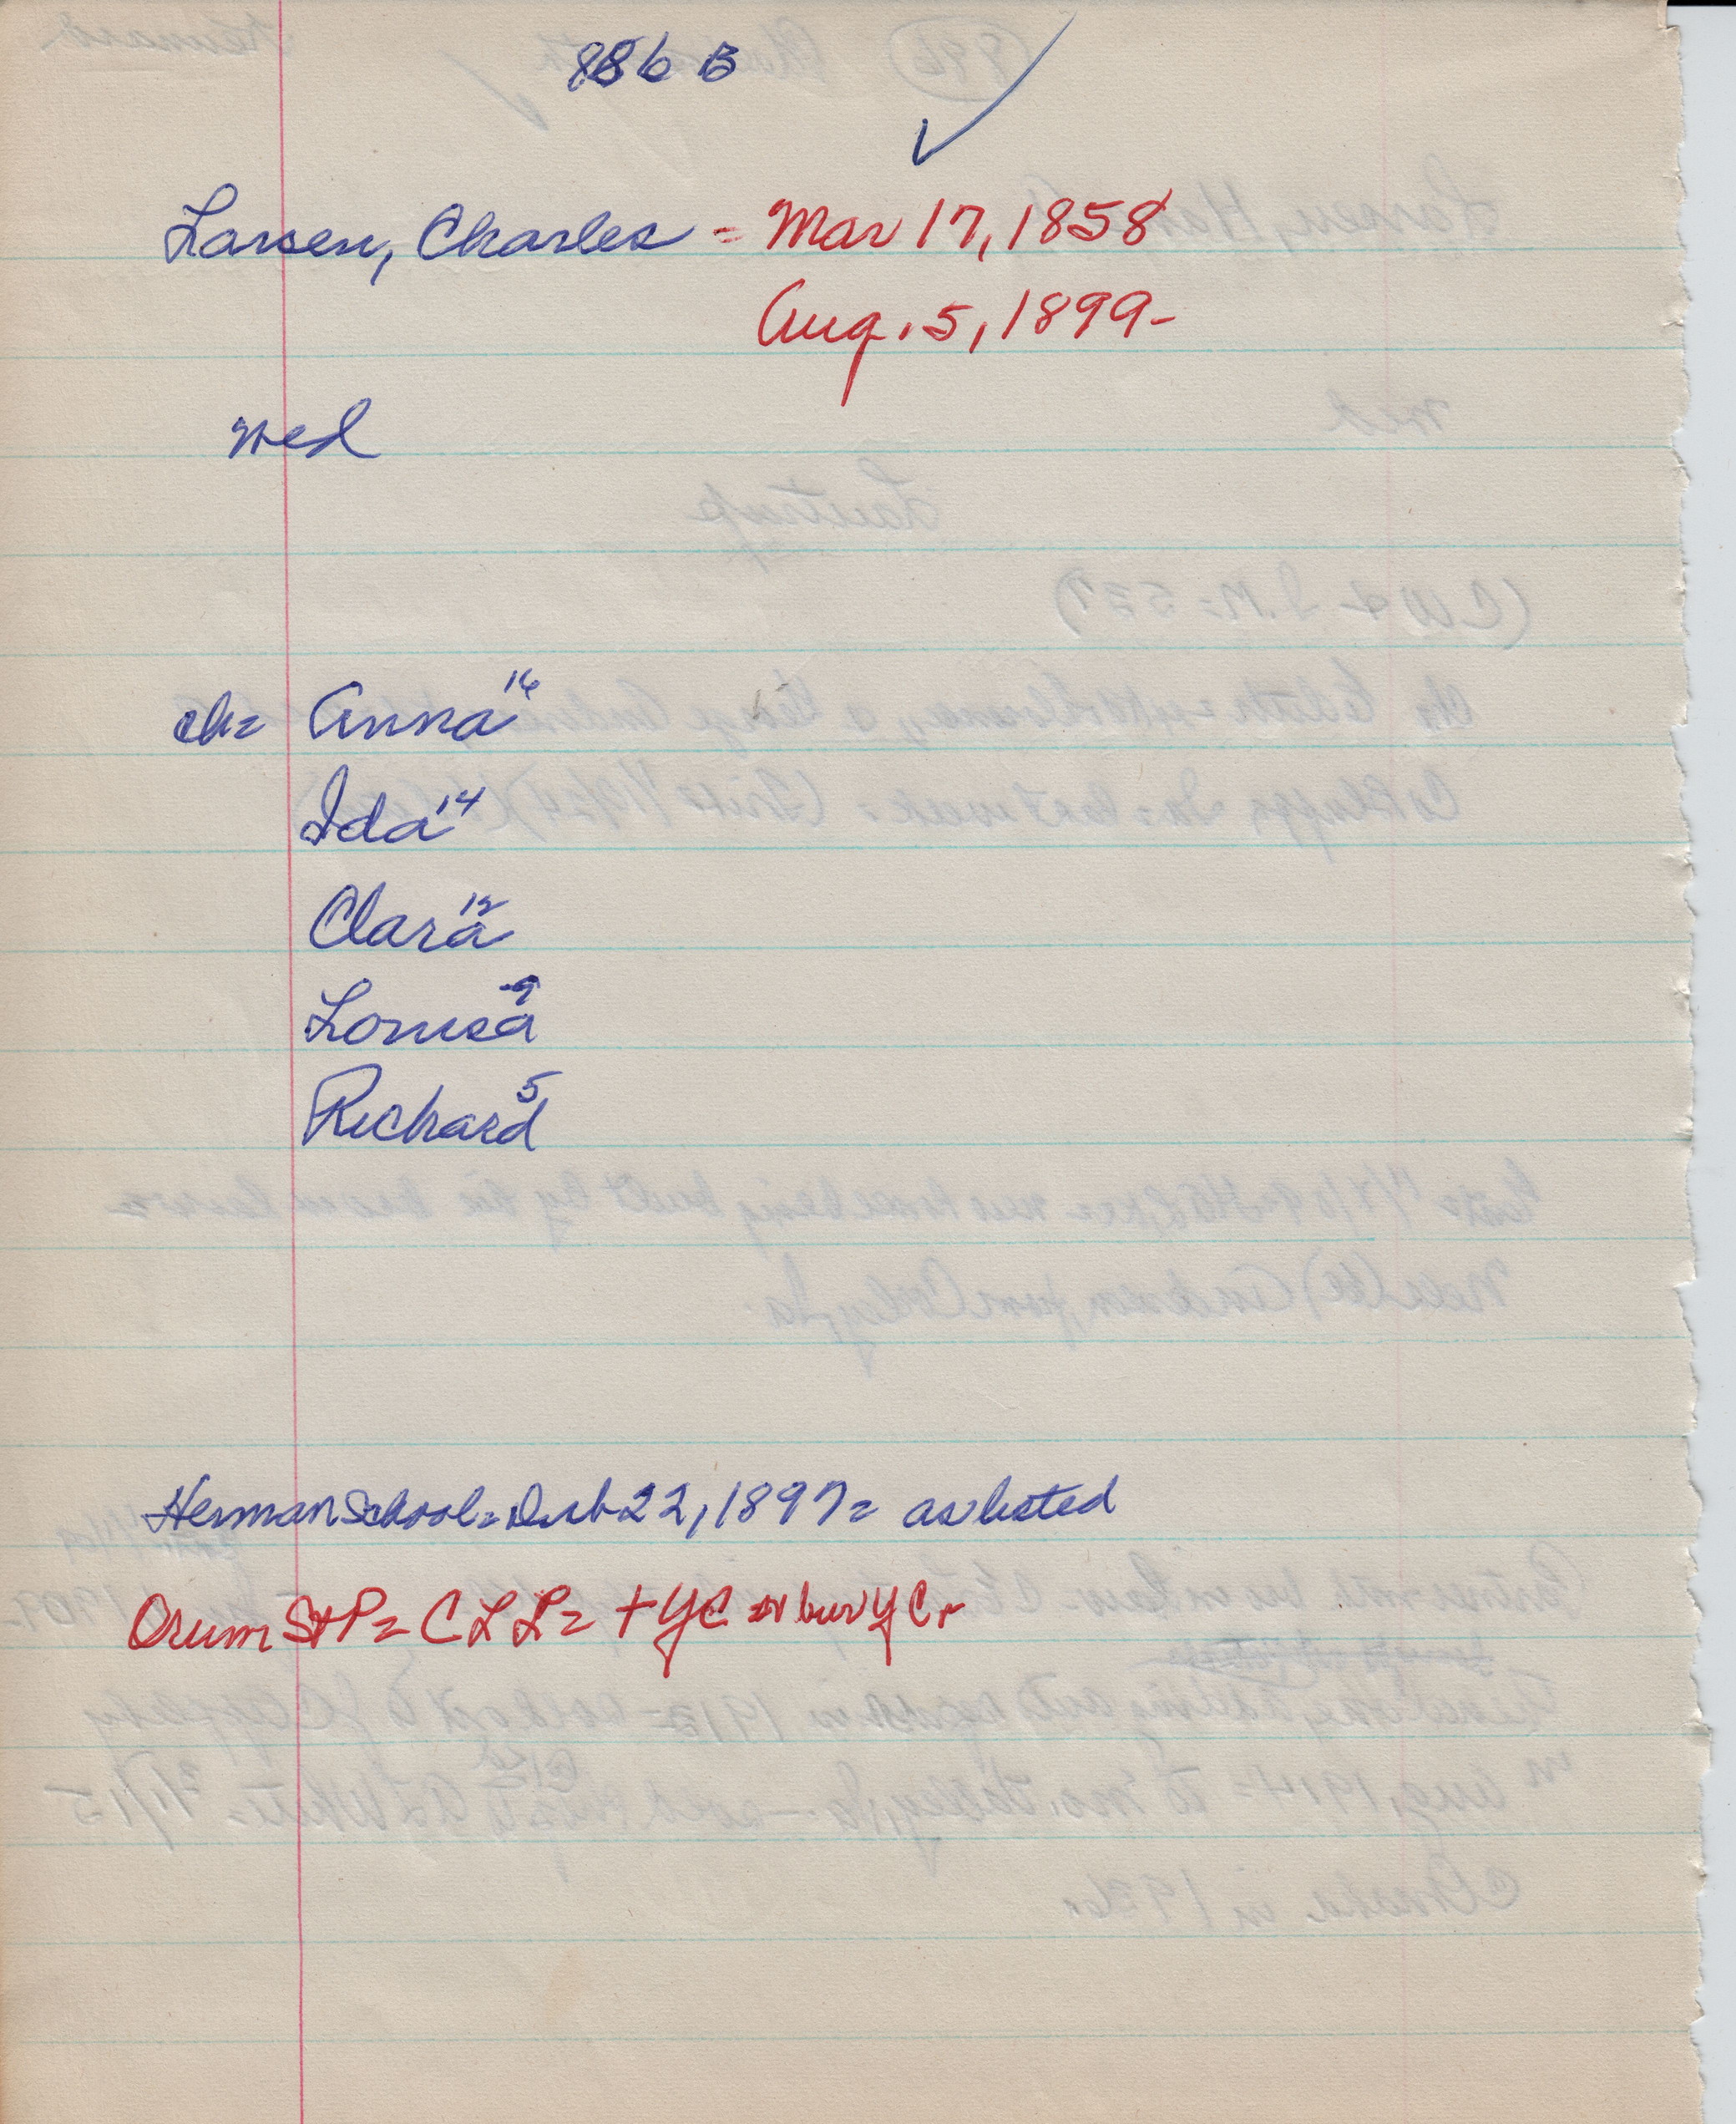 886 B
Larsen, Charles = Mar 17, 1858
Aug. 5, 1899-
wed
ch= Anna 16
Ida 14
Clara 12
Louisa 9
Richard 5
Herman School = 22, 1897 = as listed
Orum StP = C L L = + YC bur YC